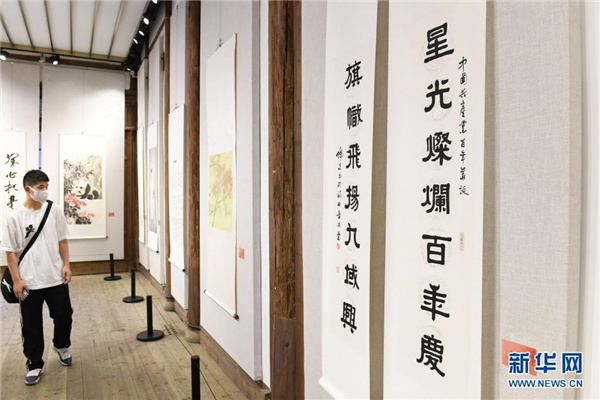 星光燦爛百年慶
中國共產黨百年華誕
旗幟飛揚九域興
新华网
WWW.NEWS.CN